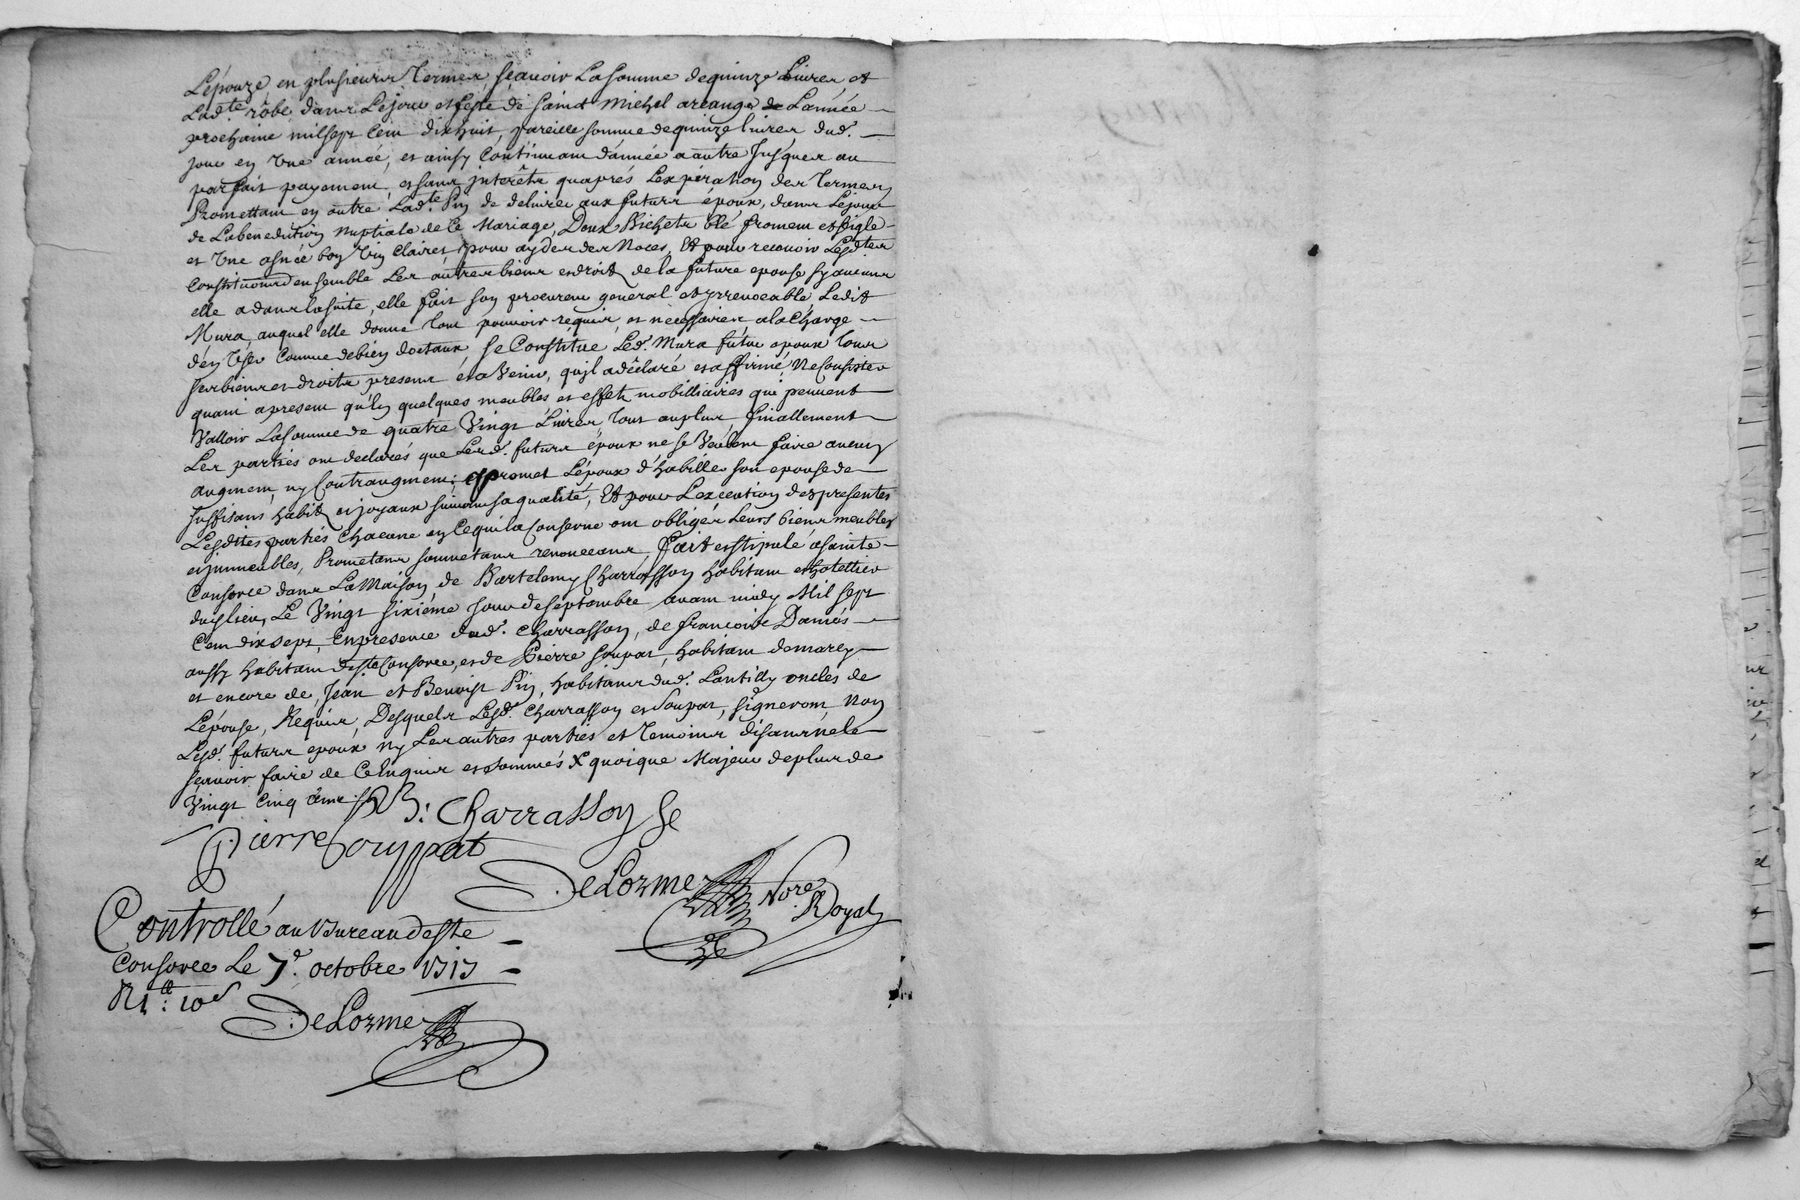 L'épouze, en plusieurs termes, sçauoir La somme de quinze Liures, et
Lad.te rôbe dans Le jour et feste de saint Michel arcange de L'année
prochaine mil sept cent dix huit, pareille somme de quinze liures dud.
jour en Une année, et ainsy Continuant d'année a autre Jusques au
parfait payement, et sans jnterêts qu'aprés L'expiration des termes,
Promettant en outre Lad.te Pin de deliurer aux futurs époux, dans Le jour
de La benediction nuptiale de ce Mariage, Deux Bichets blé froment et seigle
et Une asnée bon Vin Clairet pour ayder des Noces, Et pour receuoir Lesd.tes
Constitutions ensemble Les autres biens et droits de la future epouse sy aucuns
elle a dans la suite, elle fait son procureur general et jrreuocable, Ledit
Mura, auquel elle donne tout pouuoir requis, et nécessaire, a la charge
d'en Vser comme de bien doctaux, se Constitüe Led. Mura futur epoux tous
ses biens et droits present et a Venir, qu'jl a déclaré et affirmé, Ne Consister
quant apresent qu'en quelques meubles et effets mobilliaires qui peuuent
Valloir La somme de quatre Vingt Liures, tout au plus, finallement
Les parties ont declarés que Lesd. futurs époux ne se Veulent faire aucun
augment, ny Contraugment; promet L'époux d'habiller son epouse de
suffisans habits et joyaux suiuant sa qualité, Et pour L'execution des presentes
Lesdittes parties Chacune en Ce qui la Conserne ont obligés Leurs biens meubles
et jmmeubles, Prometans soumetans renonceans, fait et stipulé a sainte
Consorce dans La Maison de Bartelemy Charrasson habitant et hotellier
dud. lieu, Le Vingt sixiéme jour de septembre auant midy Mil sept
Cent dix sept, En presence dud. Charrasson, de françois Damés
aussy habitant dud. S.te Consorce, et de Pierre soupat, habitant de marcy
et encore de Jean et Benoist Pin, habitans dud. Lantilly oncles de
L'épouse, Requis, Desquels Lesd. Charrasson et soupat, signeront, Non
Lesd. futurs epoux ny Les autres parties et temoins disant ne le
sçauoir faire de Ce Enquis et sommés X quoique Majeur de plus de
Vingt Cinq
B: Charrasson
Pierre Souppat
DeLorme Nore Royal
Controllé au Bureau de Ste
Consorce Le 7.e octobre 1717
R 1tt: 10s
DeLorme